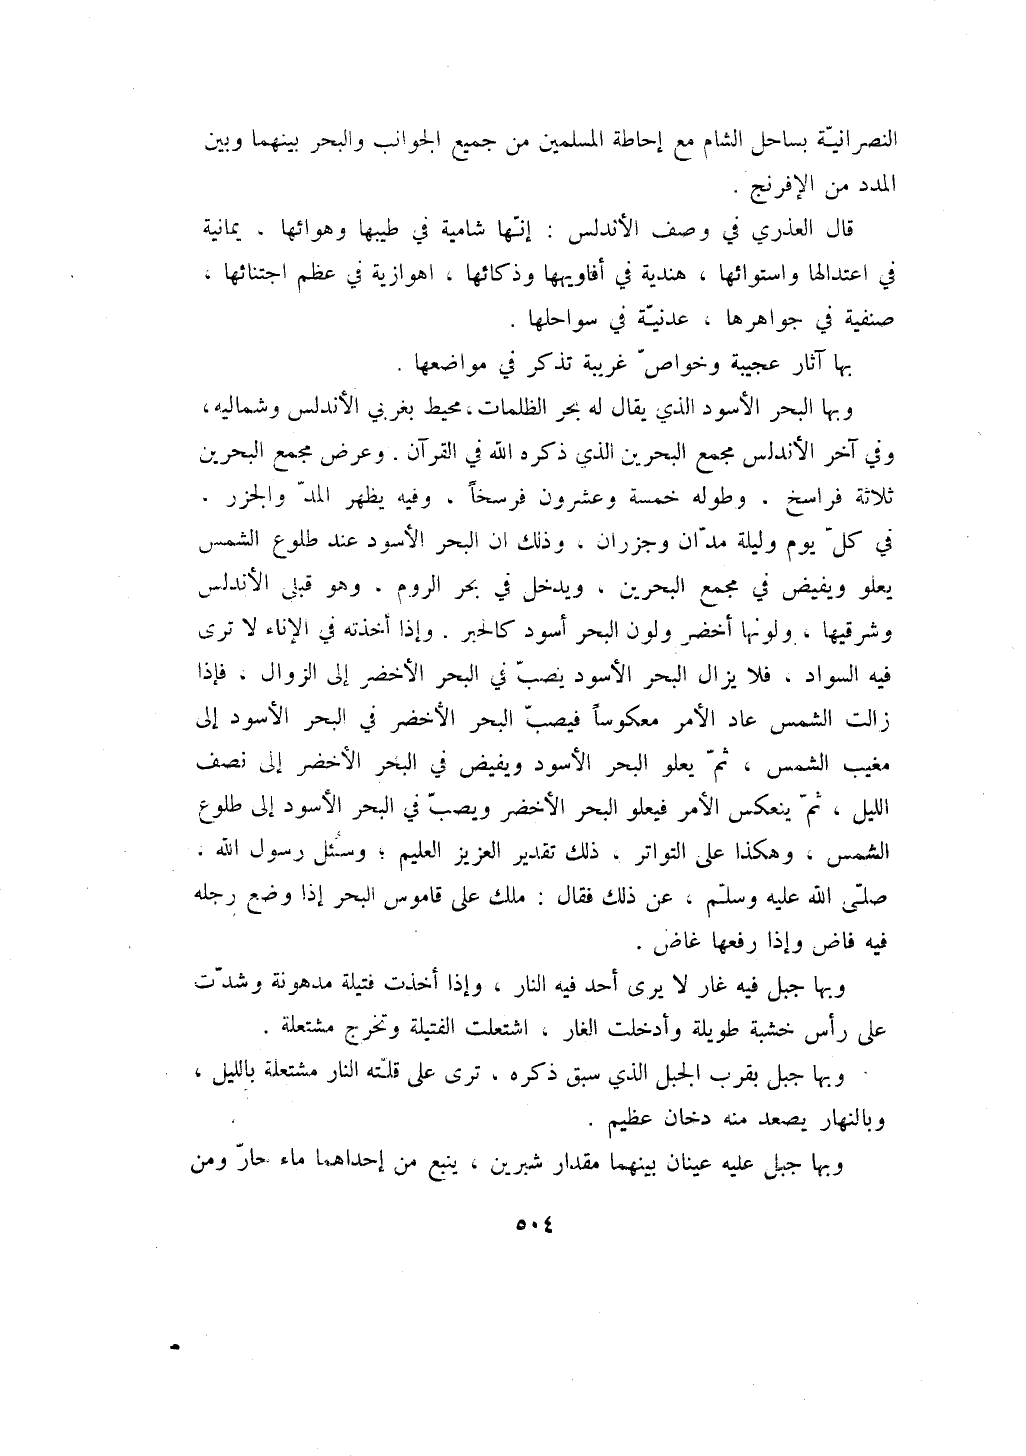 النصرانيّة بساحل الشام مع إحاطة المسلمين من جميع الجوانب والبحر بينهما وبين
المدد من الإفرنج .
قال العذري في وصف الأندلس : إنّها شامية في طيبها وهوائها . يمانية
في اعتدالها واستوائها ، هندية في أفاويهها وذكائها ، اهوازية في عظم اجتنائها ،
صنفية في جواهرها ، عدنيّة في سواحلها .
بها آثار عجيبة وخواصّ غريبة تذكر في مواضعها .
وبها البحر الأسود الذي يقال له بحر الظلمات ، محيط بغربي الأندلس وشماليه ،
وفي آخر الأندلس مجمع البحرين الذي ذكره الله في القرآن . وعرض مجمع البحرين
ثلاثة فراسخ . وطوله خمسة وعشرون فرسخاً . وفيه يظهر المدّ والجزر .
في كلّ يوم وليلة مدّان وجزران . وذلك ان البحر الأسود عند طلوع الشمس
يعلو ويفيض في مجمع البحرين ، ويدخل في بحر الروم . وهو قبلي الأندلس
وشرقيها ، ولونها أخضر ولون البحر أسود كالحبر . وإذا أخذته في الإناء لا ترى
فيه السواد . فلا يزال البحر الأسود يصبّ في البحر الأخضر إلى الزوال ، فإذا
زالت الشمس عاد الأمر معكوساً فيصبّ البحر الأخضر في البحر الأسود إلى
مغيب الشمس ، ثمّ يعلو البحر الأسود ويفيض في البحر الأخضر إلى نصف
الليل ، ثمّ ينعكس الأمر فيعلو البحر الأخضر ويصبّ في البحر الأسود إلى طلوع
الشمس ، وهكذا على التواتر . ذلك تقدير العزيز العليم ؛ وسُئل رسول الله .
صلّى الله عليه وسلّم ، عن ذلك فقال : ملك على قاموس البحر إذا وضع رجله
فيه فاض وإذا رفعها غاض .
وبها جبل فيه غار لا يرى أحد فيه النار ، وإذا أخذت فتيلة مدهونة وشدّت
على رأس خشبة طويلة وأدخلت الغار ، اشتعلت الفتيلة وتخرج مشتعلة .
وبها جبل بقرب الجبل الذي سبق ذكره . ترى على قلّته النار مشتعلة بالليل ،
وبالنهار يصعد منه دخان عظيم .
وبها جبل عليه عينان بينهما مقدار شبرين ، ينبع من إحداهما ماء حارّ ومن
٥٠٤